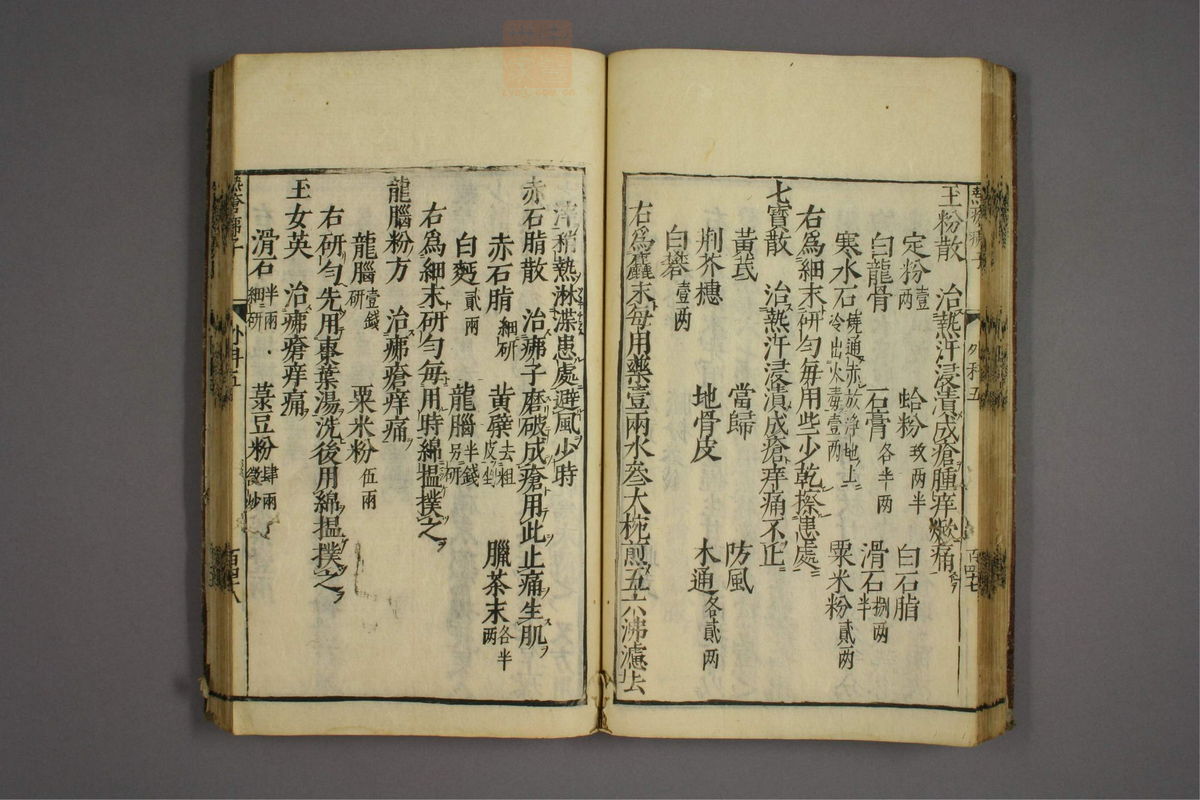 玉粉散　治熱汗浸漬成瘡腫痒焮痛
定粉壹两　蛤粉玖两半　白石脂
白龍骨　石膏各半两　滑石捌两半
寒水石燒通赤放淨地上冷出火毒壹两　粟米粉貳两
右爲細末研匀毎用些少乾擦患處
七寳散　治熱汗浸漬成瘡痒痛不止
黃芪　當歸　防風
荆芥穗　地骨皮　木通各貳两
白礬壹两
右爲麤末毎用藥壹兩水叁大椀煎五六沸濾去
外科五
百四七
滓稍熱淋渫患處避風少時
赤石脂散　治疿子磨破成瘡用此止痛生肌ヲ
赤石脂細研　黃蘗去粗皮　臘茶末各半两
白麪貳兩　龍腦半錢另研
右爲細末研匀毎用時綿揾撲之
龍腦粉方　治疿瘡痒痛
龍腦壹錢研　粟米粉伍兩
右研匀先用棗葉湯洗後用綿揾撲之
玉女英　治疿瘡痒痛
滑石半兩細研　菉豆粉肆兩微炒
外科五
百四八